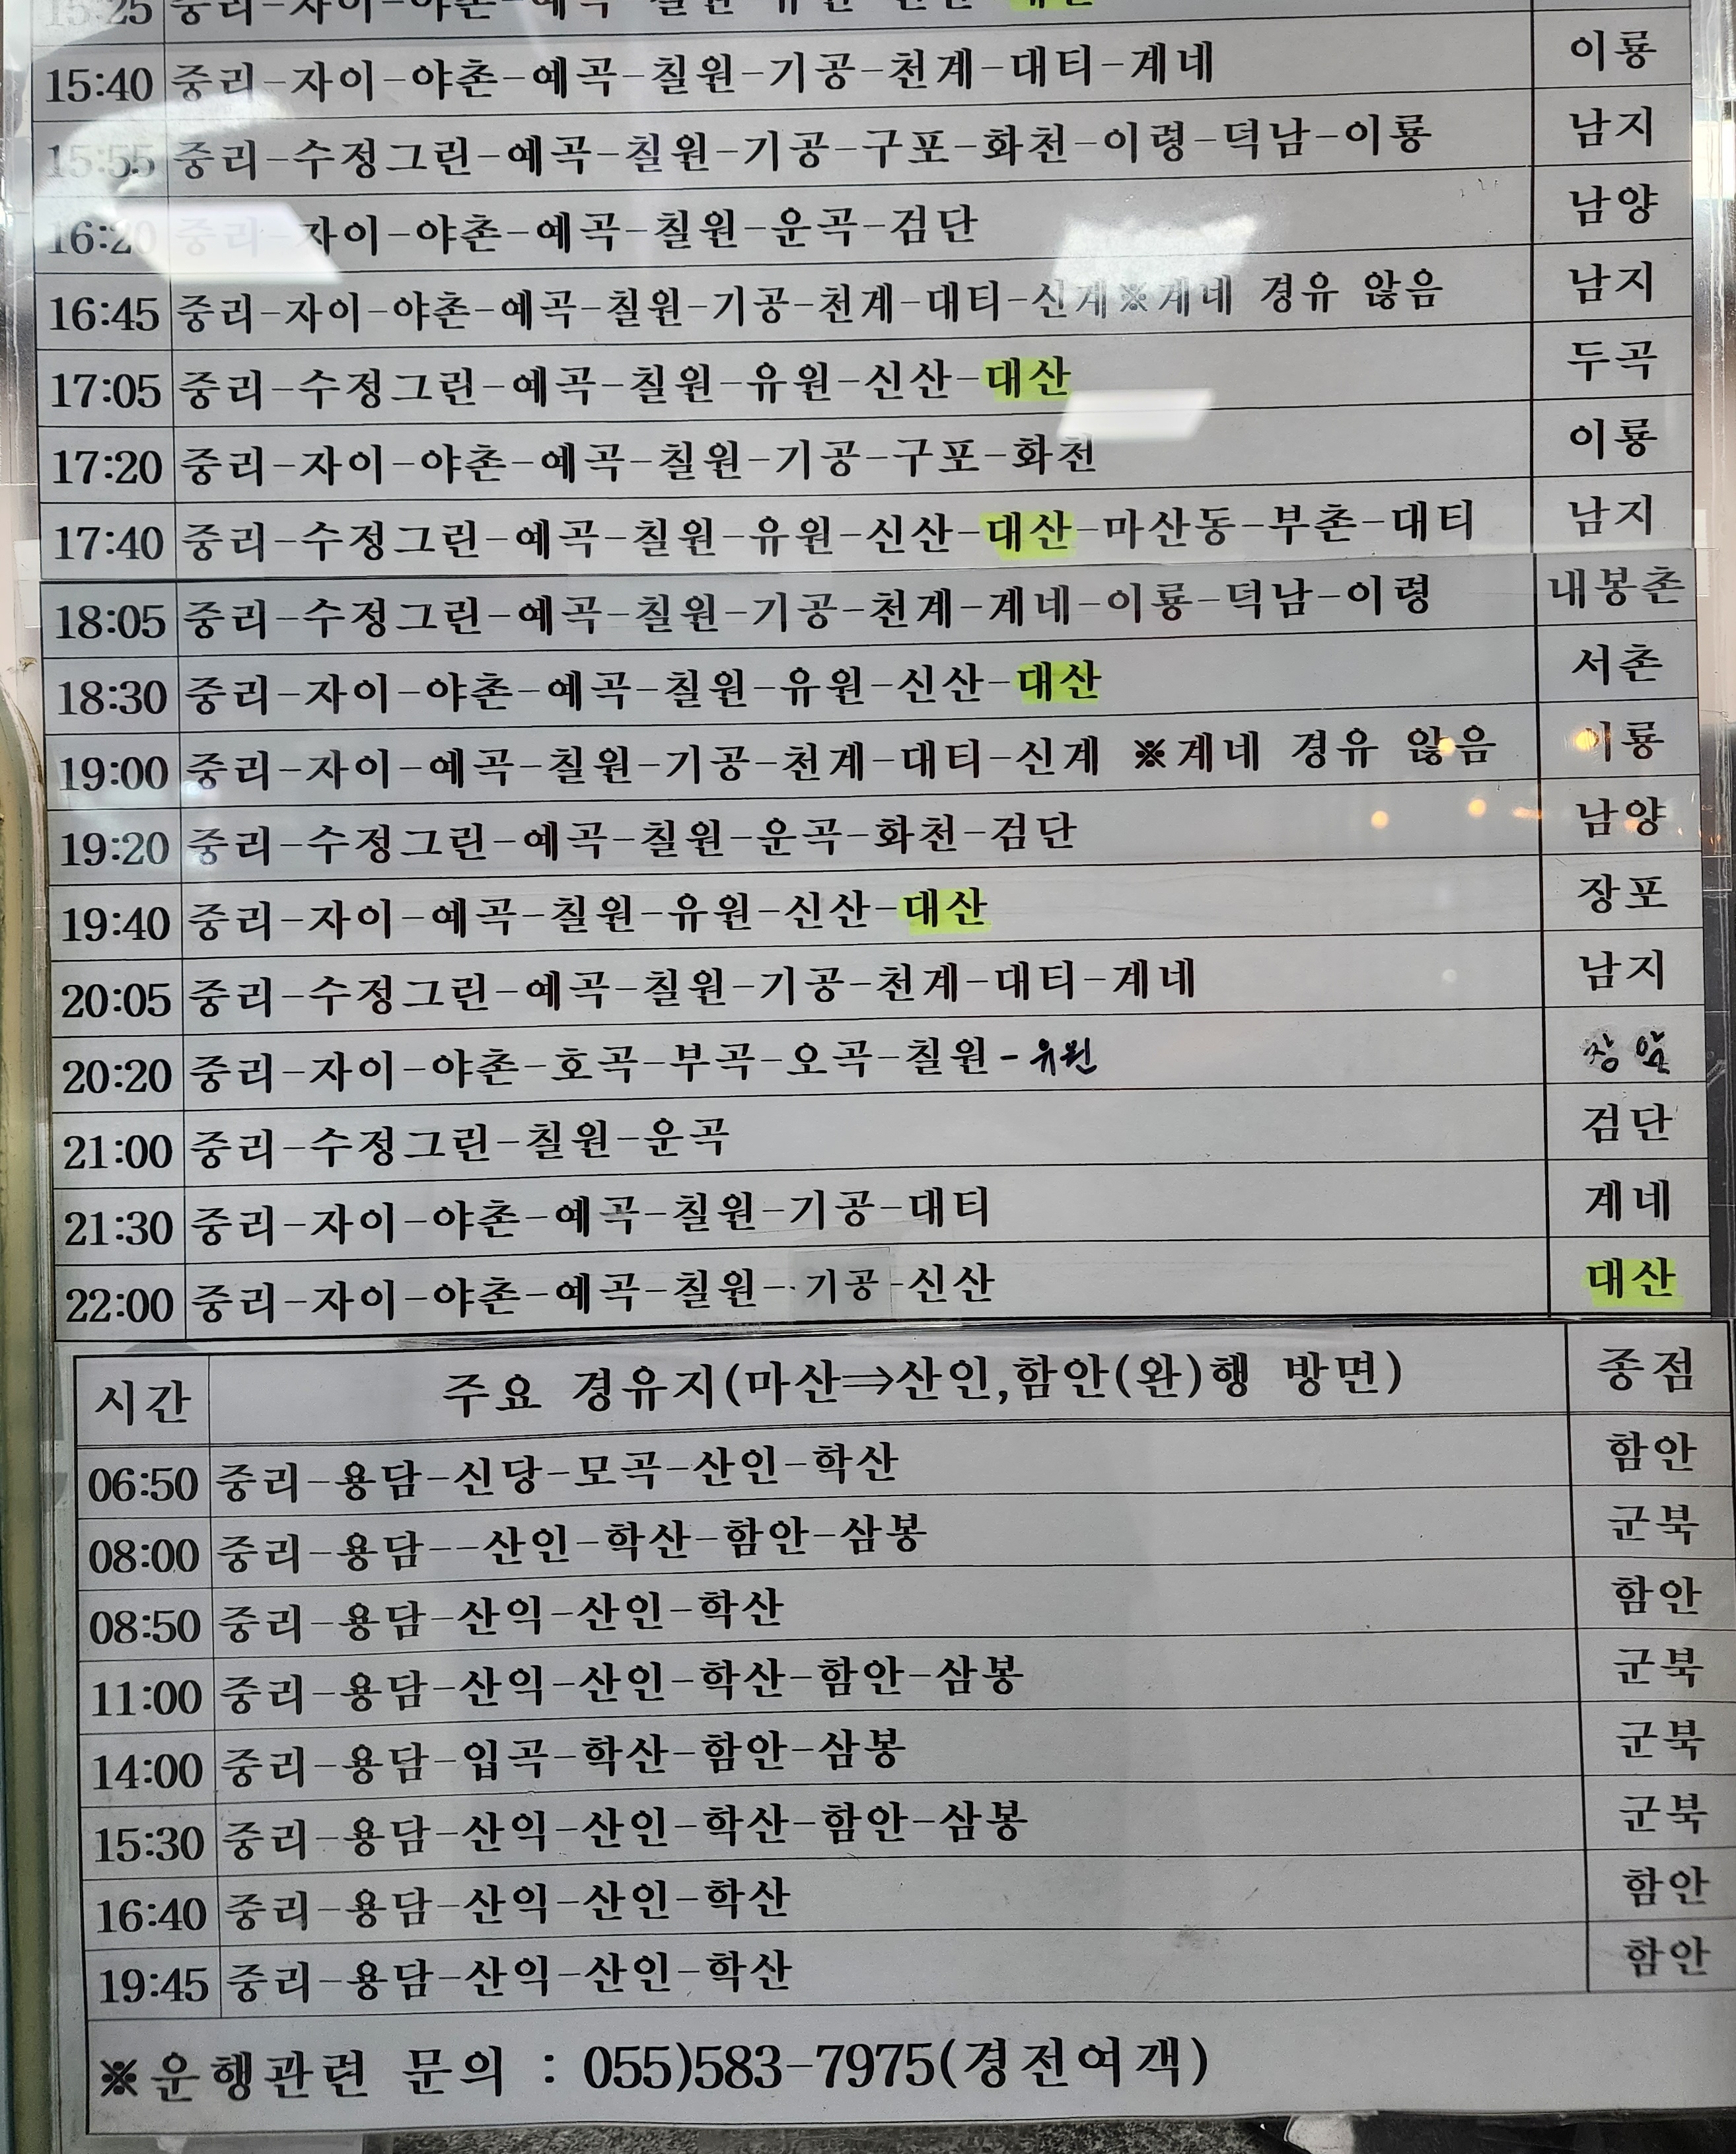 15:25 중리-자이-야촌-예곡-칠원-유원-신산-대산
15:40 중리-자이-야촌-예곡-칠원-기공-천계-대티-계네 이룡
15:55 중리-수정그린-예곡-칠원-기공-구포-화천-이령-덕남-이룡 남지
16:20 중리-자이-야촌-예곡-칠원-운곡-검단 남양
16:45 중리-자이-야촌-예곡-칠원-기공-천계-대티-신계※계네 경유 않음 남지
17:05 중리-수정그린-예곡-칠원-유원-신산-대산 두곡
17:20 중리-자이-야촌-예곡-칠원-기공-구포-화천 이룡
17:40 중리-수정그린-예곡-칠원-유원-신산-대산-마산동-부촌-대티 남지
18:05 중리-수정그린-예곡-칠원-기공-천계-계네-이룡-덕남-이령 내봉촌
18:30 중리-자이-야촌-예곡-칠원-유원-신산-대산 서촌
19:00 중리-자이-예곡-칠원-기공-천계-대티-신계 ※계네 경유 않음 이룡
19:20 중리-수정그린-예곡-칠원-운곡-화천-검단 남양
19:40 중리-자이-예곡-칠원-유원-신산-대산 장포
20:05 중리-수정그린-예곡-칠원-기공-천계-대티-계네 남지
20:20 중리-자이-야촌-호곡-부곡-오곡-칠원-유원 장암
21:00 중리-수정그린-칠원-운곡 검단
21:30 중리-자이-야촌-예곡-칠원-기공-대티 계네
22:00 중리-자이-야촌-예곡-칠원-기공-신산 대산
시간 주요 경유지(마산⇒산인,함안(완)행 방면) 종점
06:50 중리-용담-신당-모곡-산인-학산 함안
08:00 중리-용담--산인-학산-함안-삼봉 군북
08:50 중리-용담-산익-산인-학산 함안
11:00 중리-용담-산익-산인-학산-함안-삼봉 군북
14:00 중리-용담-입곡-학산-함안-삼봉 군북
15:30 중리-용담-산익-산인-학산-함안-삼봉 군북
16:40 중리-용담-산익-산인-학산 함안
19:45 중리-용담-산익-산인-학산 함안
※운행관련 문의 : 055)583-7975(경전여객)